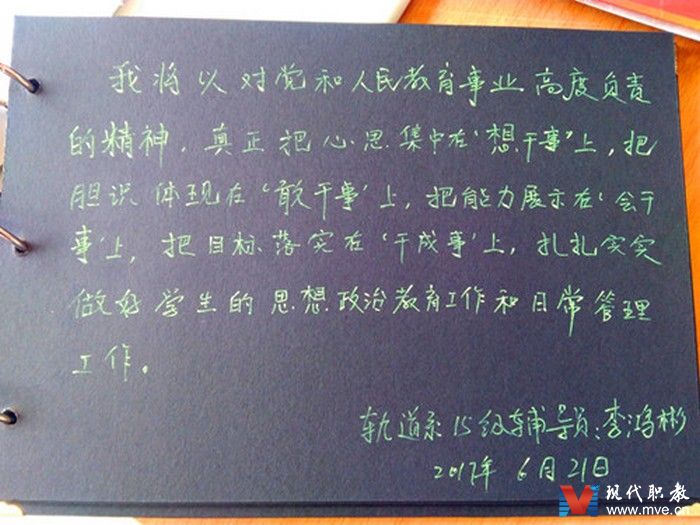 我将以对党和人民教育事业高度负责
的精神，真正把心思集中在‘想干事’上，把
胆识体现在‘敢干事’上，把能力展示在‘会干
事’上，把目标落实在‘干成事’上，扎扎实实
做好学生的思想政治教育工作和日常管理
工作。
轨道系15级辅导员：李鸿彬
2017年6月21日
现代职教
www.mve.cn